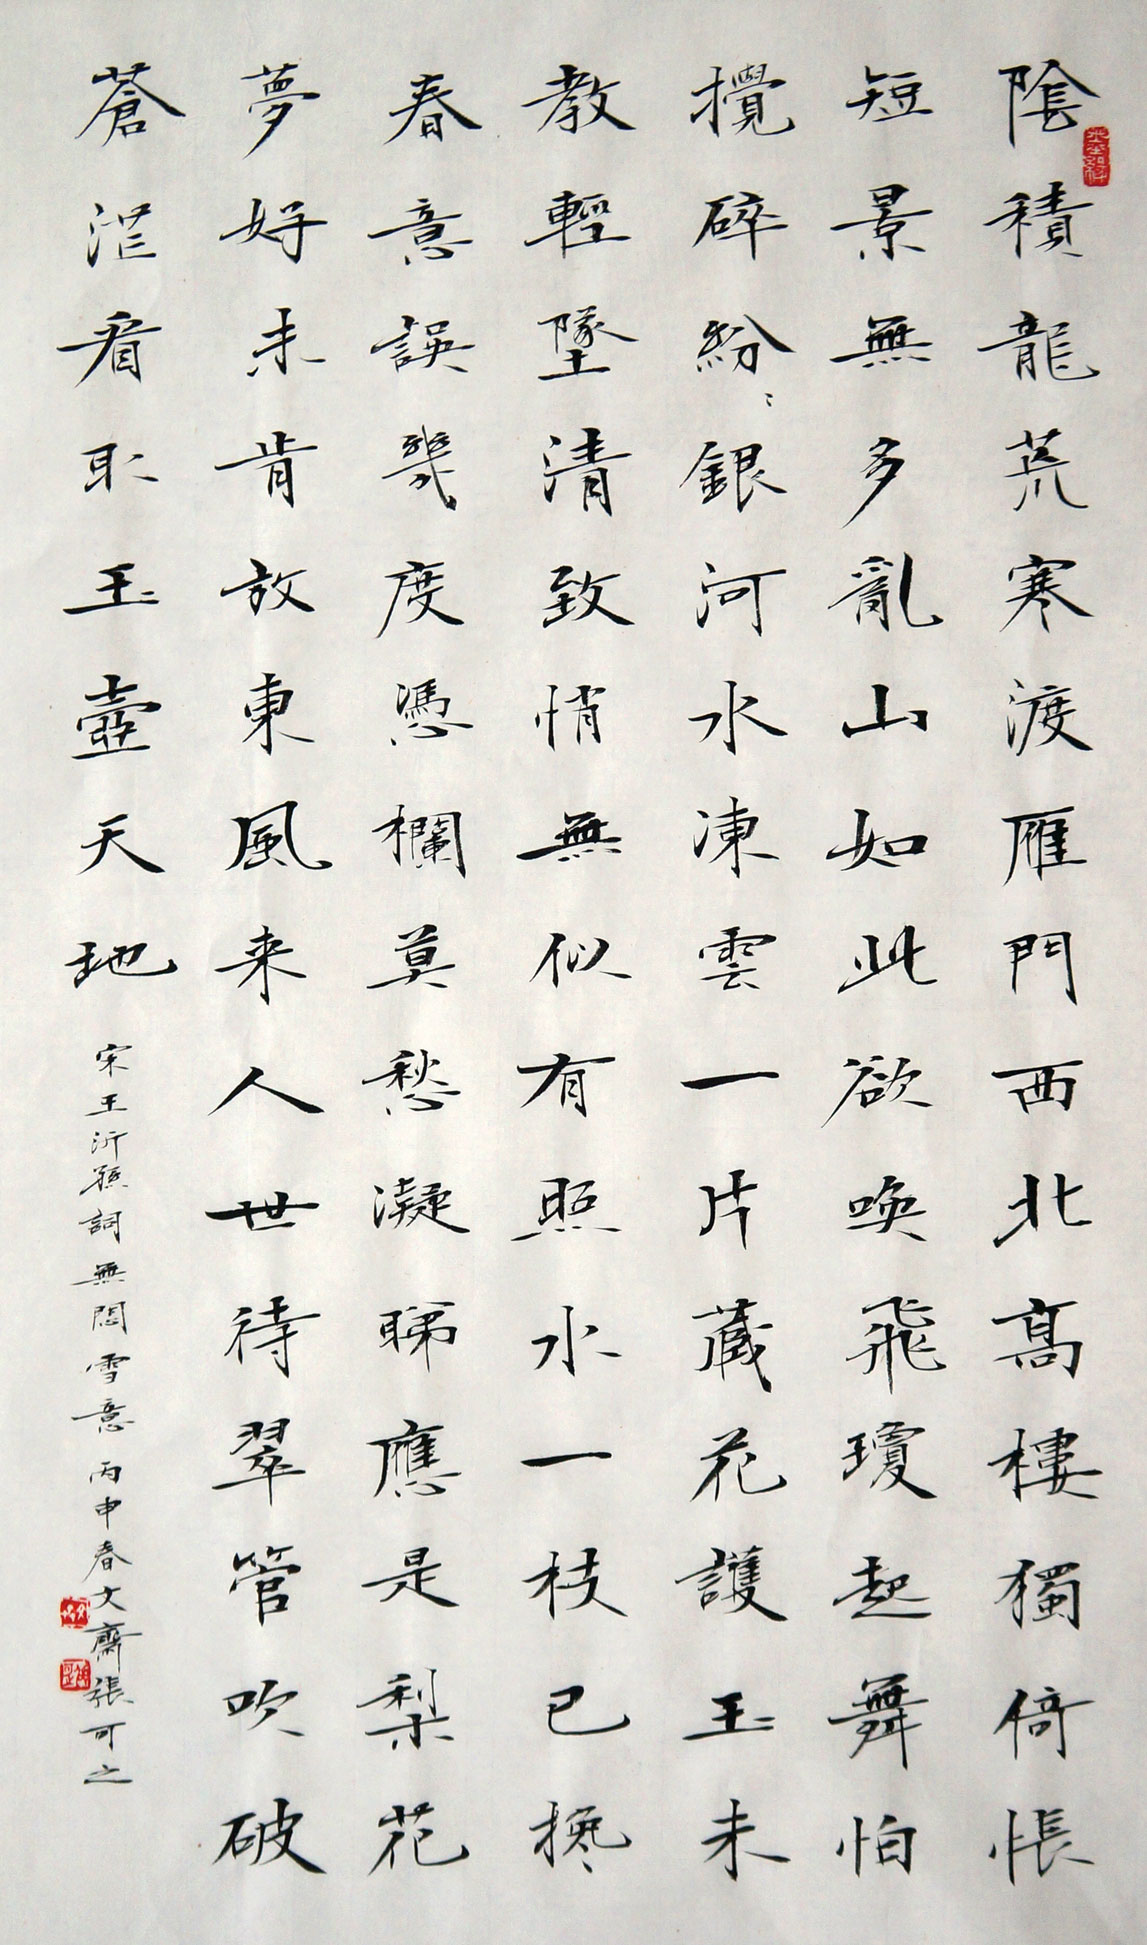 陰積龍荒寒渡雁門西北髙樓獨倚悵
短景無多亂山如此欲喚飛瓊起舞怕
攪碎紛〻銀河水凍雲一片藏花護玉未
教輕墜清致悄無似有照水一枝已攙
春意誤幾度憑欄莫愁凝睇應是梨花
夢好未肯放東風来人世待翠管吹破
蒼茫看取玉壺天地
宋王沂孫詞無悶雪意丙申春文齋張可之